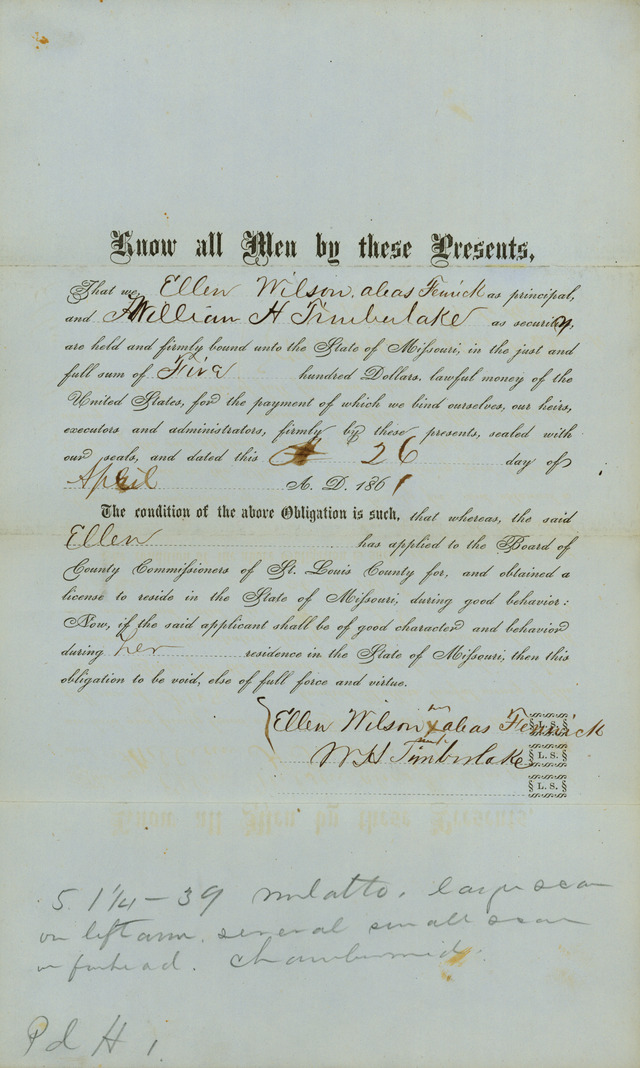 Know all Men by these Presents,
That we Ellen Wilson, aleas Fenrick as principal,
and William H Timberlake as security,
are held and firmly bound unto the State of Missouri, in the just and
full sum of Five hundred Dollars, lawful money of the
United States, for the payment of which we bind ourselves, our heirs,
executors and administrators, firmly by these presents, sealed with
our seals, and dated this 26 day of
April A. D. 1861
The condition of the above Obligation is such, that whereas, the said
Ellen has applied to the Board of
County Commissioners of St. Louis County for, and obtained a
license to reside in the State of Missouri, during good behavior:
Now, if the said applicant shall be of good character and behavior
during her residence in the State of Missouri, then this
obligation to be void, else of full force and virtue.
Ellen Wilson X aleas Fenrick L. S.
mark
W H Timberlake L. S.
L. S.
5. 1 1/4 - 39 mulatto. large scar
on left arm. several small scar
on forhead. Chambermaid.
Pd H 1.